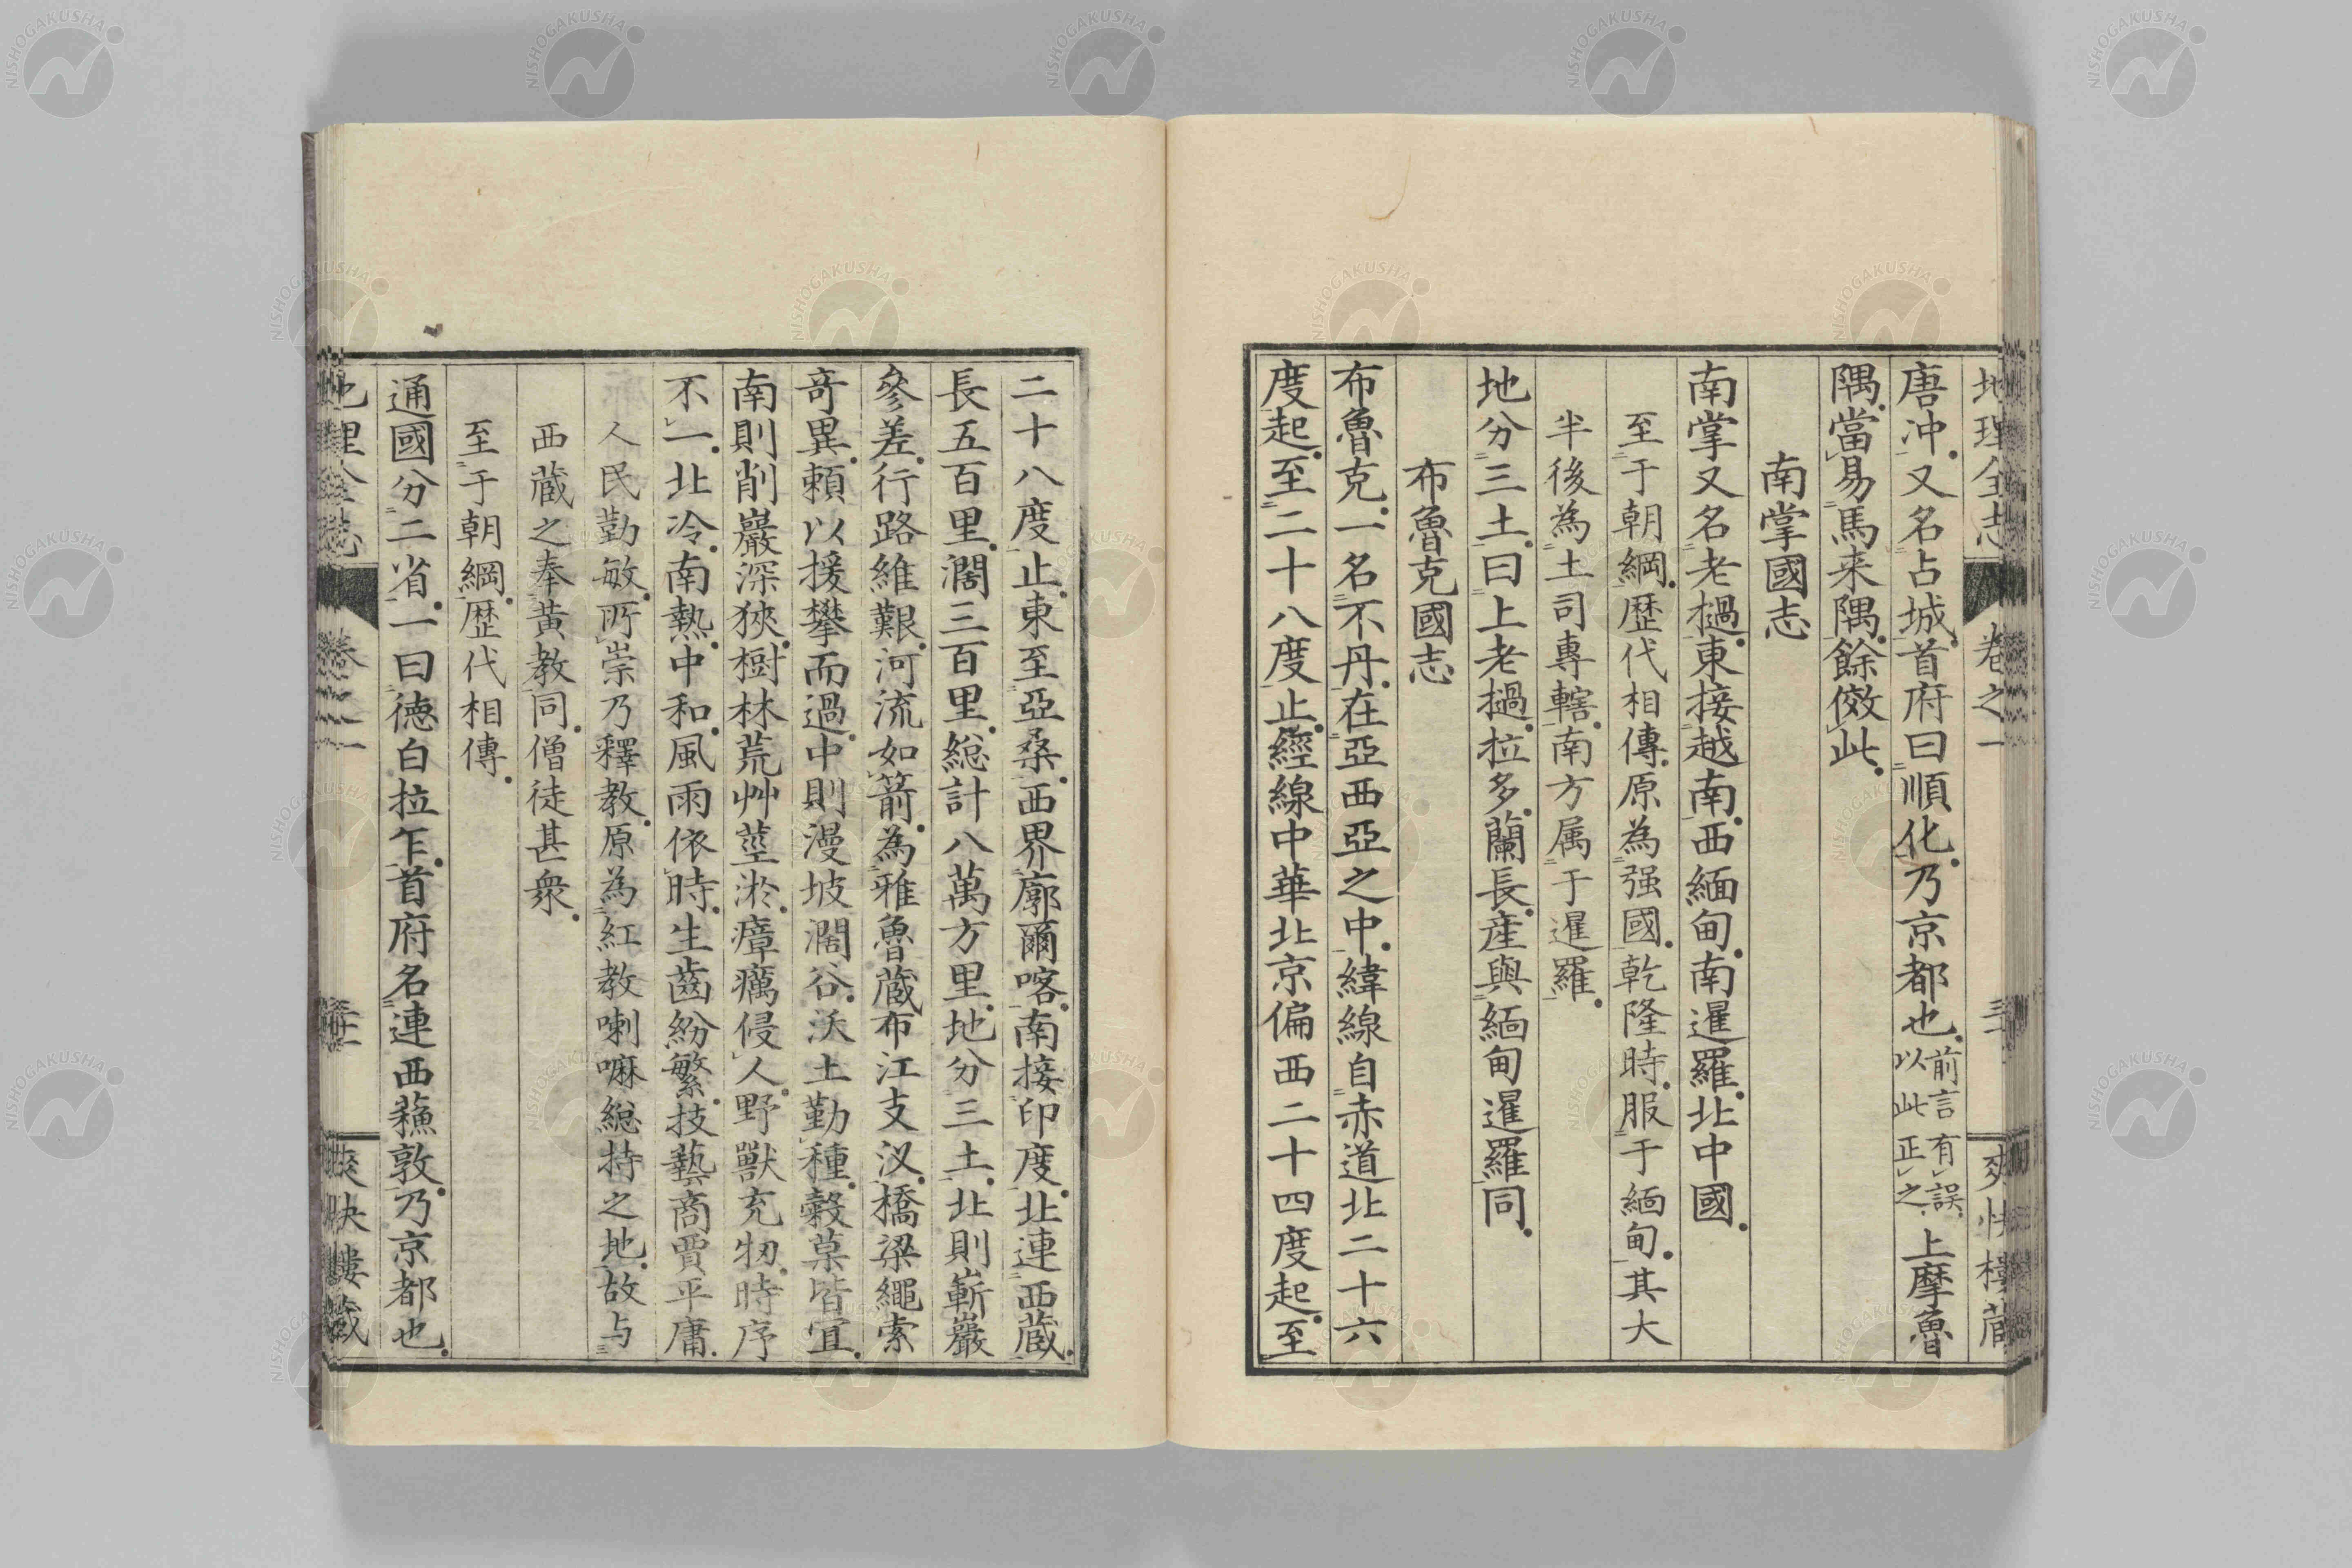 地理全志 卷之一 爽快樓蔵
唐冲又名占城首府曰順化乃京都也前言有誤以此正之上摩魯
隅當易馬来隅餘傚此
南掌國志
南掌又名老撾東接越南西緬甸南暹羅北中國
至于朝綱歴代相傳原為强國乾隆時服于緬甸其大
半後為土司專轄南方属于暹羅
地分三土曰上老撾拉多蘭長産與緬甸暹羅同
布魯克國志
布魯克一名不丹在亞西亞之中緯線自赤道北二十六
度起至二十八度止經線中華北京偏西二十四度起至
二十八度止東至亞桑西界廓爾喀南接印度北連西蔵
長五百里濶三百里総計八萬方里地分三土北則嶄巖
參差行路維艱河流如箭為雅魯蔵布江支汊橋梁繩索
竒異頼以援攀而過中則漫坡濶谷沃土勤種穀菓皆宜
南則削巖深狹樹林荒艸莖淤瘴癘侵人野獸充牣時序
不一北冷南熱中和風雨依時生齒紛繁技藝商賈平庸
人民勤敏所崇乃釋教原為紅教喇嘛総持之地故与
西蔵之奉黃教同僧徒甚衆
至于朝綱歴代相傳
通國分二省一曰德白拉乍首府名連西蘓敦乃京都也
地理全志 卷之一 爽快樓蔵
NISHOGAKUSHA